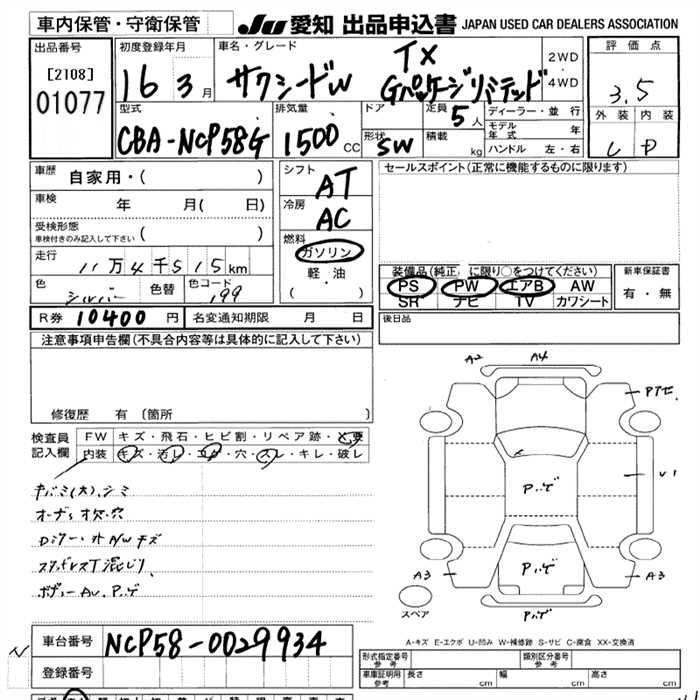 車内保管・守衛保管
JU 愛知 出品申込書 JAPAN USED CAR DEALERS ASSOCIATION
出品番号
[2108]
01077
初度登録年月
16 3月
車名・グレード
サクシードW
TX
Gパッケージリミテッド
2WD
・
4WD
評価点
3.5
外装 内装
C D
型式
CBA-NCP58G
排気量
1500cc
ドア
形状
SW
定員
5人
積載
kg
ディーラー・並行
モデル年式 年
ハンドル 左・右
車歴
自家用・( )
車検
年 月( 日)
受検形態
車検付きのみ記入して下さい ( )
走行
11万4千515km
色
シルバー
色替
色コード
199
シフト
AT
冷房
AC
燃料
ガソリン
軽・油
( )
セールスポイント(正常に機能するものに限ります)
装備品(純正に限り○をつけてください)
PS PW エアB AW
SR ナビ TV カワシート
新車保証書
有・無
R券 10400円
名変通知期限 月 日
後日品
注意事項申告欄(不具合内容等は具体的に記入して下さい)
修復歴 有 〔箇所 〕
検査員
記入欄
FW キズ・飛石・ヒビ割・リペア跡・X要
内装 キズ・汚レ・コゲ・穴・スレ・キレ・破レ
キバミ(大)、シミ
オーディオ欠・穴
Dミラー・外A/Wキズ
ボディーAU、Pハゲ
A2 A4
Pハゲ
U1
Pハゲ
Pハゲ
A3 A3
Pハゲ
スペア
A-キズ E-エクボ U-凹み W-補修跡 S-サビ C-腐食 XX-交換済
車台番号 NCP58-0029934
登録番号
形式指定番号
参考
類別区分番号
参考
車庫証明用
参考
長さ cm
幅 cm
高さ cm